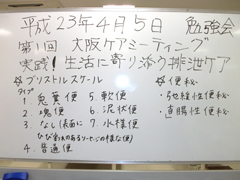 平成23年4月5日 勉強会
第1回 大阪ケアミーティング
実践!生活に寄り添う排泄ケア
※ブリストルスケール
タイプ
1. 兎糞便
2. 塊便
3. なし(表面に
ひび割れのあるソーセージの様な便)
4. 普通便
5. 軟便
6. 泥状便
7. 水様便
※便秘
・弛緩性便秘
・直腸性便秘